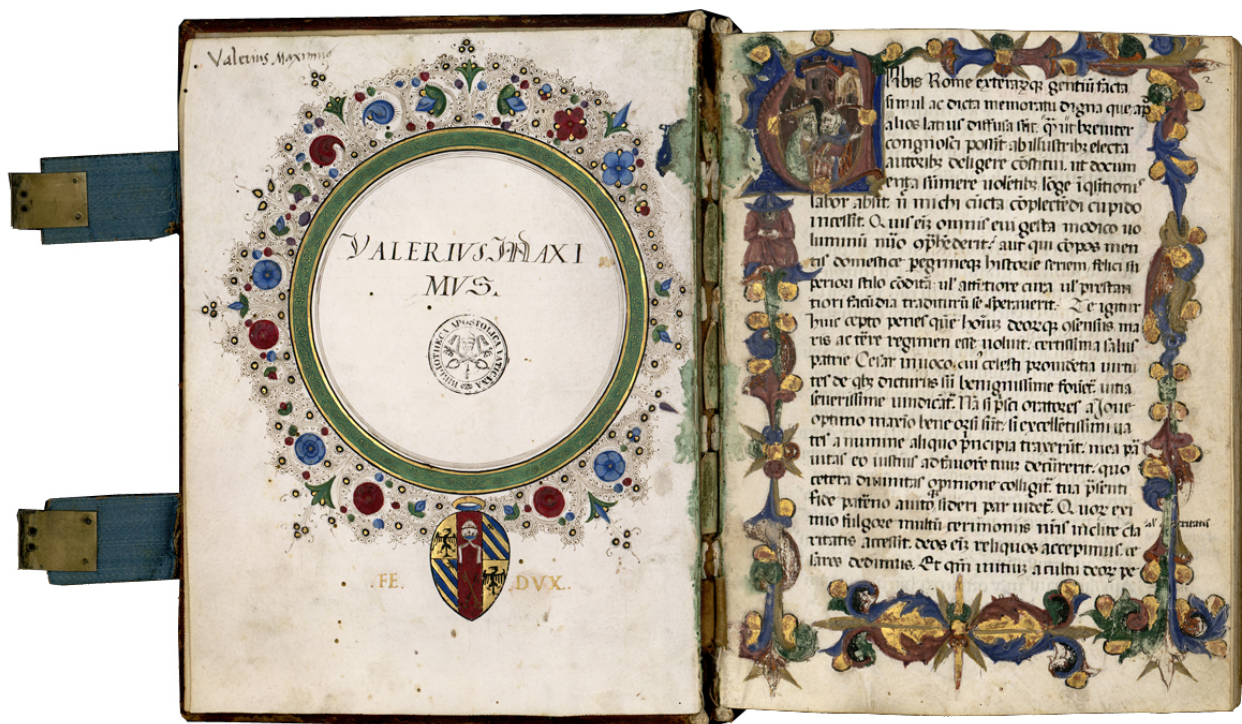 Valerius Maximus
VALERIVS MAXI
MVS.
BIBLIOTHECA APOSTOLICA VATICANA
.FE. .DVX.
2
Urbis Rome exterarūq; gentiū facta
simul ac dicta memoratu digna que ap̄
alios latius diffusa sūt. q̄ ut breuiter
congnosci possīt ab illustribꝫ electa
autoribꝫ deligere cōstitui. ut docum
enta sūmere uolētibꝫ lōge īqsitionis
labor absit. n̄ michi cūcta cōplectēdi cupido
incessit. Quis eī omnis eui gesta modico uo
luminū nūo aut qui cōpos men
tis domestice pegrineq; historie seriem felici su
periori stilo cōditā ul' attētiore cura ul' prestan
tiori facūdia traditurū se sperauerit. Te igitur
huic cepto penes quē hoīuꝫ deorꝫq; cōsensus ma
ris ac terre regimen esse uoluit. certissima salus
patrie Cesar inuoco. cui' celesti prouidētia uirtu
tes de qbꝫ dicturus sū benignissime fouēt. uitia
seuerissime uindicāt. Nā si p̄sci oratores a Ioue
optimo maxīo bene orsi sūt. si excellētissimi ua
tes a numine aliquo p̄ncipia traxerūt. mea pa
uitas eo iustius ad fauorē tuuꝫ decurrerit. quo
cetera diuinitas opinione colligit. tua p̄senti
fide paterno auitoq; sideri par uidet. Quoꝝ exi
mio fulgore multū cerimoniis nr̄is inclite cla
ritatis accessit. deos eī reliquos accepimus. ce
sares dedimus. Et qm̄ initiuꝫ a cultu deoꝝ pe